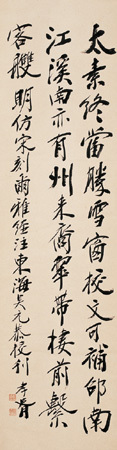 太素終當勝雪窗校文可補邰南
江溪南亦有州来裔翠帶樓前繫
客艭 明仿宋刻爾雅經注東海吳元恭校刊 孝胥